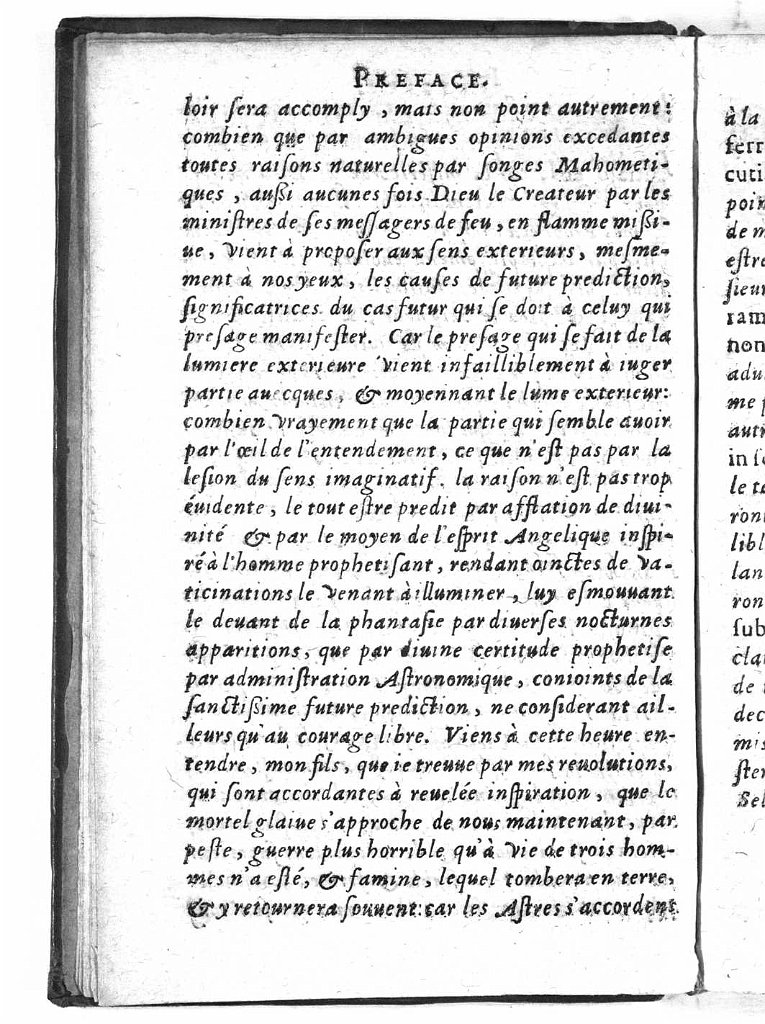 PREFACE.
loir ſera accomply, mais non point autrement:
combien que par ambigues opinions excedantes
toutes raiſons naturelles par ſonges Mahometi-
ques, außi aucunes fois Dieu le Createur par les
miniſtres de ſes meſſagers de feu, en flamme mißi-
ue, vient à propoſer aux ſens exterieurs, meſme-
ment à nos yeux, les cauſes de future prediction,
ſignificatrices du cas futur qui ſe doit à celuy qui
preſage manifeſter. Car le preſage qui ſe fait de la
lumiere exterieure vient infailliblement à iuger
partie auecques, & moyennant le lume exterieur:
combien vrayement que la partie qui ſemble auoir
par l'œil de l'entendement, ce que n'eſt pas par la
leſion du ſens imaginatif. la raiſon n'eſt pas trop
éuidente, le tout eſtre predit par afflation de diui-
nité & par le moyen de l'eſprit Angelique inſpi-
ré à l'homme prophetiſant, rendant oinctes de va-
ticinations le venant à illuminer, luy eſmouuant
le deuant de la phantaſie par diuerſes nocturnes
apparitions, que par diuine certitude prophetiſe
par adminiſtration Aſtronomique, conioints de la
ſanctißime future prediction, ne conſiderant ail-
leurs qu'au courage libre. Viens à cette heure en-
tendre, mon fils, que ie treuue par mes reuolutions,
qui ſont accordantes à reuelée inſpiration, que le
mortel glaiue s'approche de nous maintenant, par
peſte, guerre plus horrible qu'à vie de trois hom-
mes n'a eſté, & famine, lequel tombera en terre,
& y retournera ſouuent: car les Aſtres s'accordent
à la
ferr
cuti
poin
de m
eſtre
ſieur
ram
non
adu
me
aut
in
le
ron
libl
lan
ron
ſub
cla
de
dec
mis
ſter
Sel